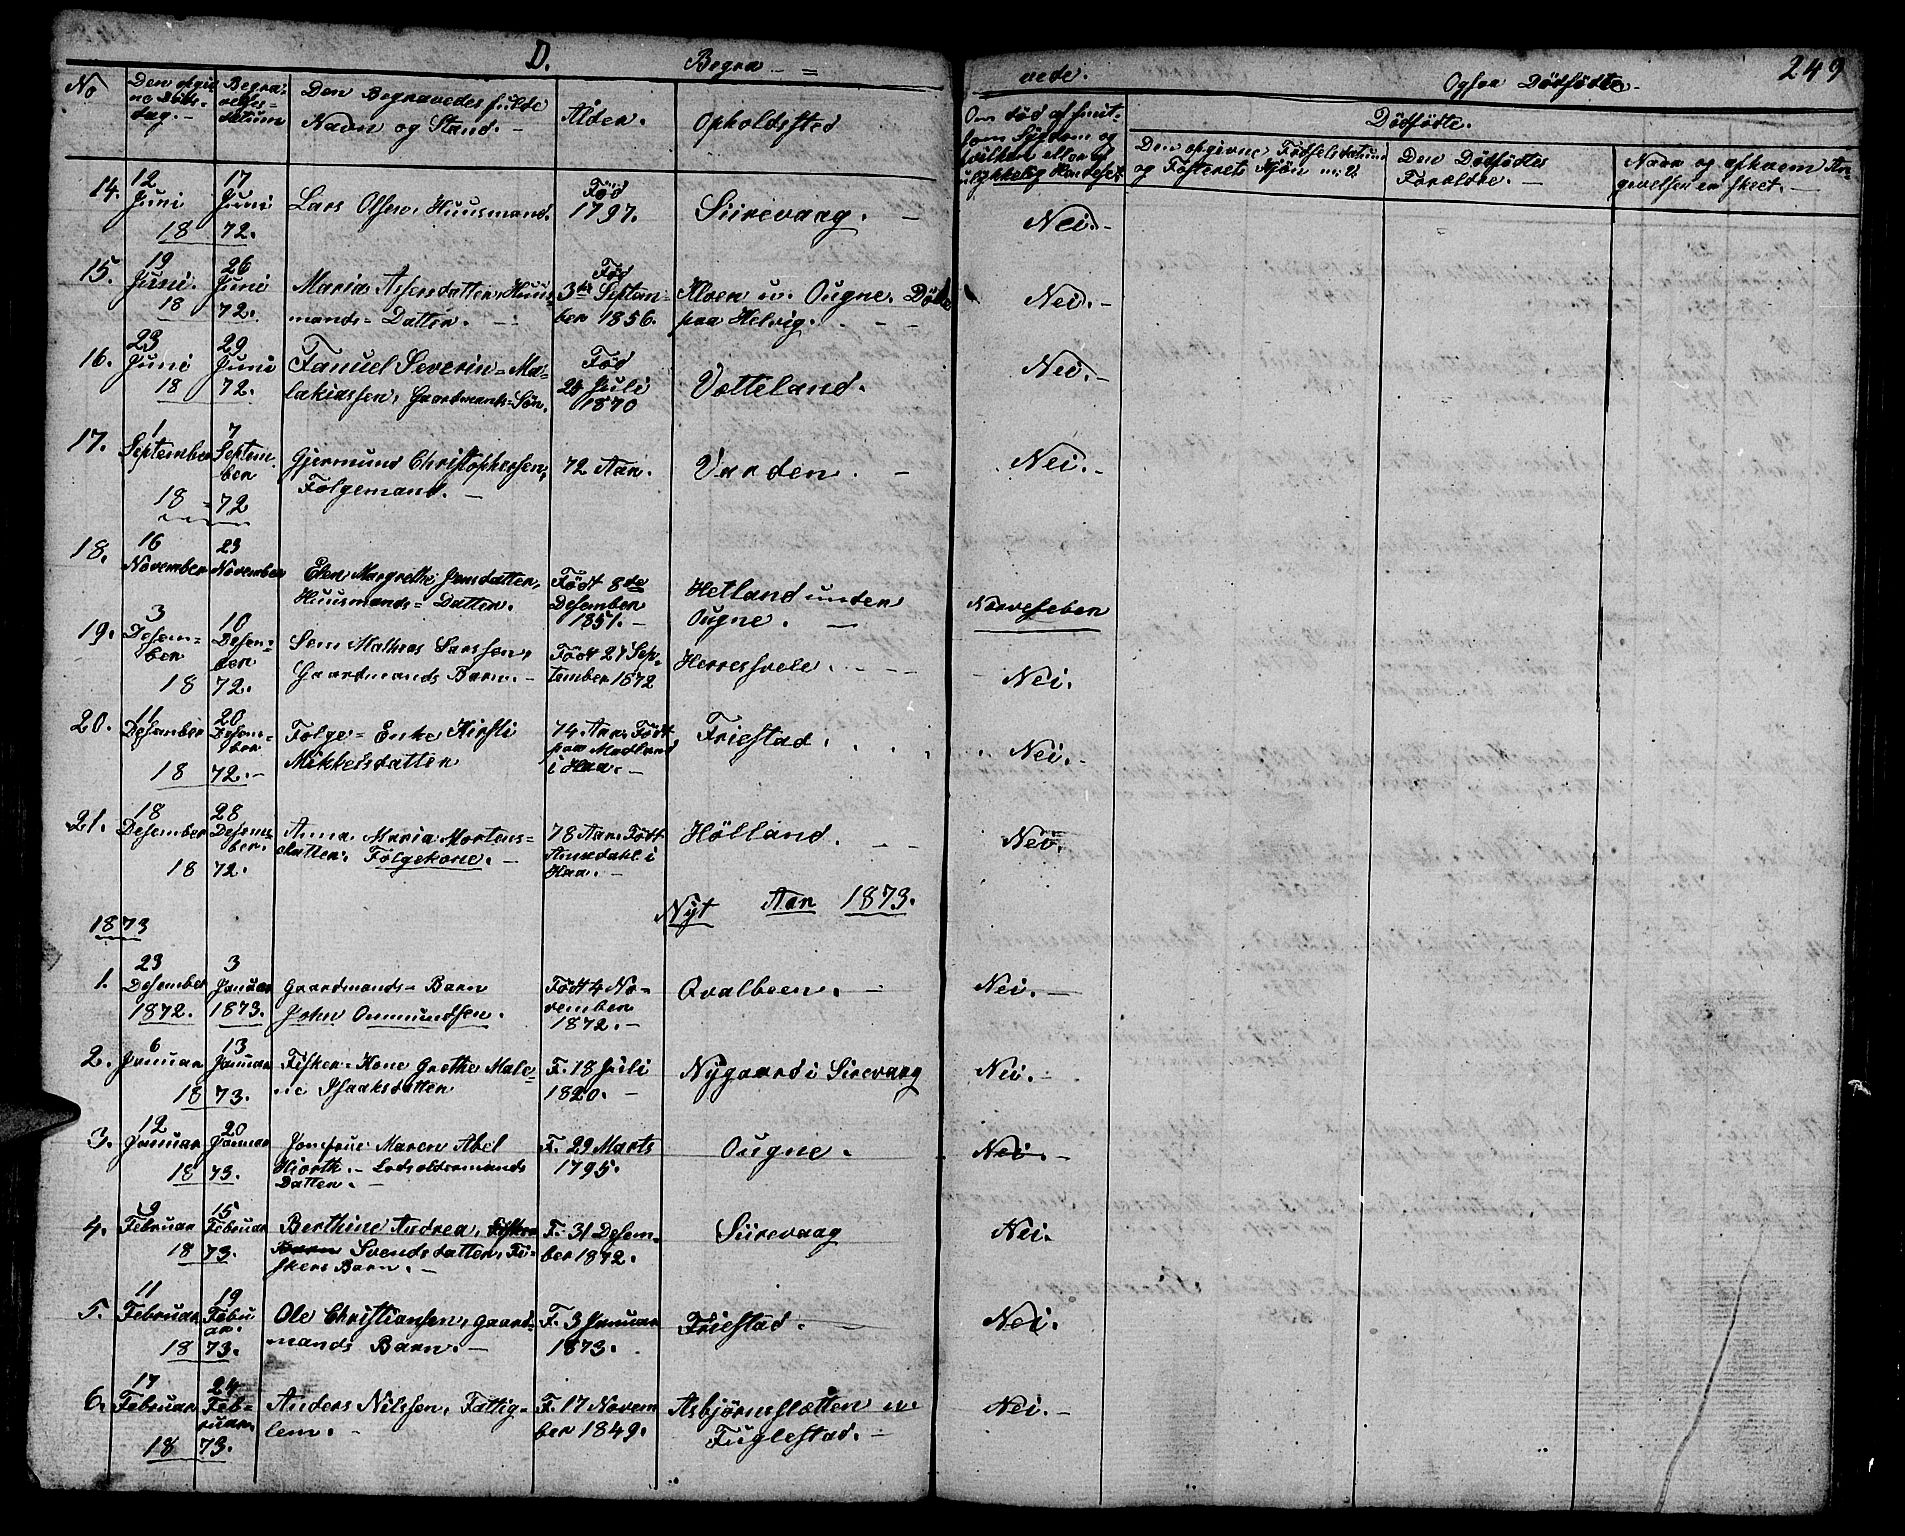 D. Begra = vede. Ogsaa Dødfødte. 249
No
Den opgivne Døds-dag. Begravelses-datum Den Begravedes fulde Navn og Stand. Alder. Opholdssted
Om død af smitsom Sygdom og hvilken eller af ulykkelig Hændelse.
Dødfødte.
Den opgivne Fødselsdatum og Fosterets Kjøn
Den Dødfødtes Forældre.
Navn og af hvem Angivelsen er skeet.
14. 12 Juni 17 Juni 18 72. Lars Olsen, Huusmand. Fød 1797. Siirevaag. Nei.
15. 19 Juni. 26 Juni 18 72. Maria Assersdatter, Huusmands=Datter. Fød 3die Septamber 1856. Kloen u. Ougne. Døde paa Helvig. Nei.
16. 23 Juni 29 Juni 18 72. Fanuel Severin=Malakiassen, Gaardmands=Søn. Fød 24 Juli 1870 Votteland. Nei.
17. 1 September 7 September 18 72 Gjermund Christophersen, Følgemand. 72 Aar. Varden. Nei.
18. 16 November 23 November Elen Margrethe Jensdatter, Huusmands=Datter. Født 8de Desember 1851. Hetland under Ougne. Nervefeber
19. 3 Desember 10 Desember 18 72. Sem Mathias Larssen, Gaardmands Barn. Født 27 September 1872 Herresvele. Nei.
20. 11 Desember 20 Desember 18 72. Følge=Enke Kirsti Mikkelsdatter 74 Aar. Født paa Madland i Haa. Friestad. Nei.
21. 18 Desember 28 Desember. 18 72. Anna Maria Mortensdatter, Følgekone. 78 Aar. Født i Haa. Hølland. Nei.
Nyt Aar 1873.
1873
1. 23 Desember 1872. 3 Januar 1873. Gaardmands=Barn John Ommundsen. Født 4 November 1872. Qvalbeen. Nei.
2. 6 Januar 13 Januar 18 73. Fisker=Kone Grethe Malene Isaaksdatter F. 18 Juli 1820. Nygaard i Sirevaag Nei.
3. 12 Januar 20 Januar 18 73. Jomfrue Maren Abel Hiorth. Lodsoldermands Datter. F. 29 Marts 1795. Ougne. Nei.
4. 9 Februar 15 Februar 18 73. Berthine Andrea, Fisker Barn Svendsdatter, Fiskers Barn. F. 31 Desember 1872. Siirevaag Nei.
5. 11 Februar 19 Febuar. 18 73. Ole Christiansen, Gaardmands Barn. F. 3 Januar 1873. Friestad. Nei.
6. 17 Februar 24 Februar. 18 73. Anders Nilssen, Fattiglem. F. 17 November 1849. Asbjørnsslætten u. Fuglestad. Nei.